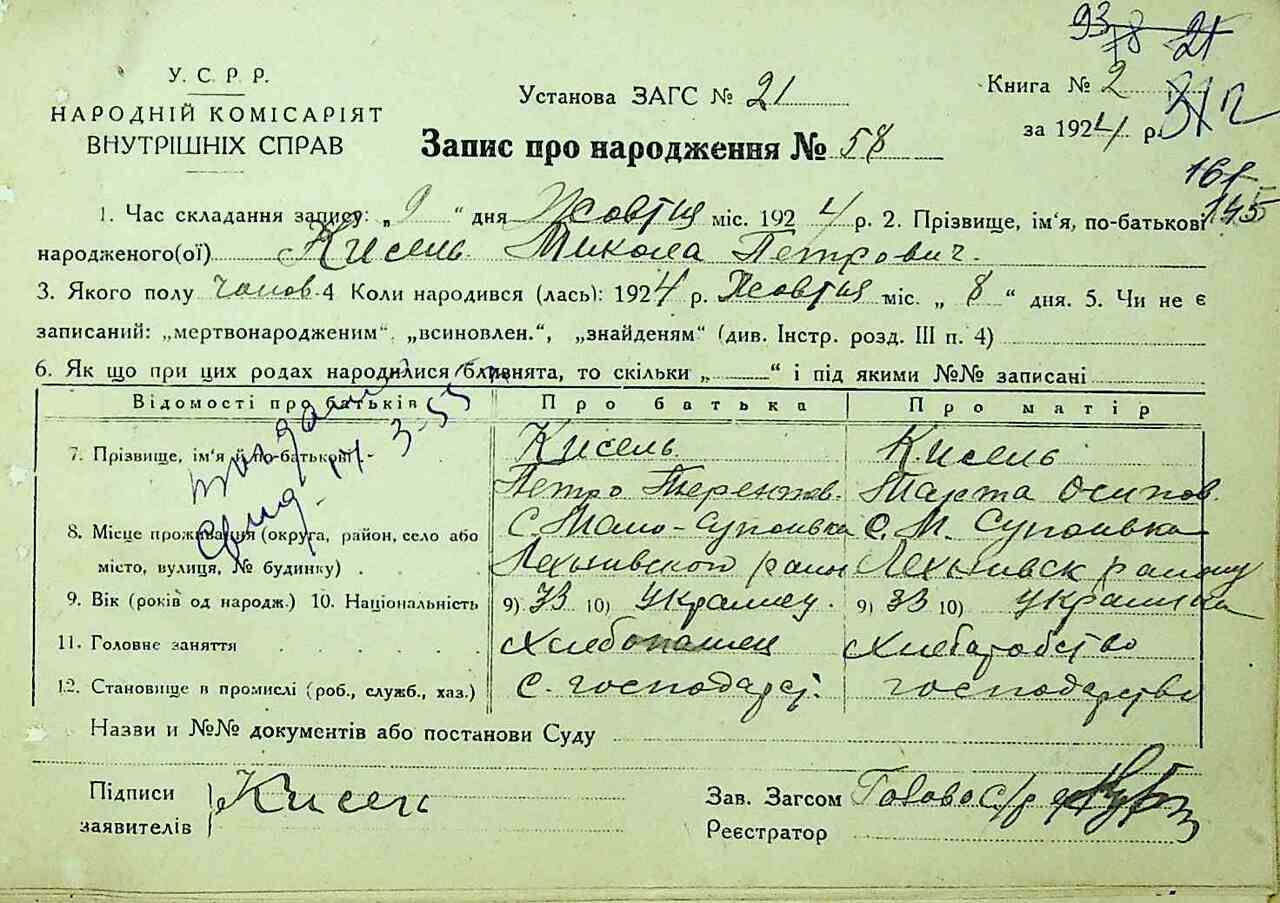 93 78 21
У. С. Р. Р.
НАРОДНІЙ КОМІСАРІЯТ
ВНУТРІШНІХ СПРАВ
Установа ЗАГС № 21
Книга № 2
за 1924 р.
Запис про народження № 58
145
1. Час складання запису: „9“ дня Жовтця міс. 1924 р. 2. Прізвище, ім'я, по-батькові
народженого(ої) Кисель Микола Петрович.
3. Якого полу Чолов. 4 Коли народився (лась): 1924 р. Жовтця міс. „8“ дня. 5. Чи не є
записаний: „мертвонародженим“, „всиновлен.“, „знайденям“ (див. Інстр. розд. III п. 4)
6. Як що при цих родах народилися близнята, то скільки „ “ і під якими №№ записані
Відомості про батьків Про батька Про матір
7. Прізвище, ім'я й по-батькові Кисель Кисель
Петро Терентов. Марта Осипов.
8. Місце проживання (округа, район, село або С. Мало-Супоивка С. М. Супоивка
місто, вулиця, № будинку) району
9. Вік (років од народж.) 10. Національність 9) 33 10) Украинец. 9) 33 10) Украинка
11. Головне заняття Хлебопашец Хлебаробство
12. Становище в промислі (роб., служб., хаз.) с. господарс. господарство
Назви и №№ документів або постанови Суду
Підписи Кисел
заявителів
Зав. Загсом Голова с/р
Реєстратор